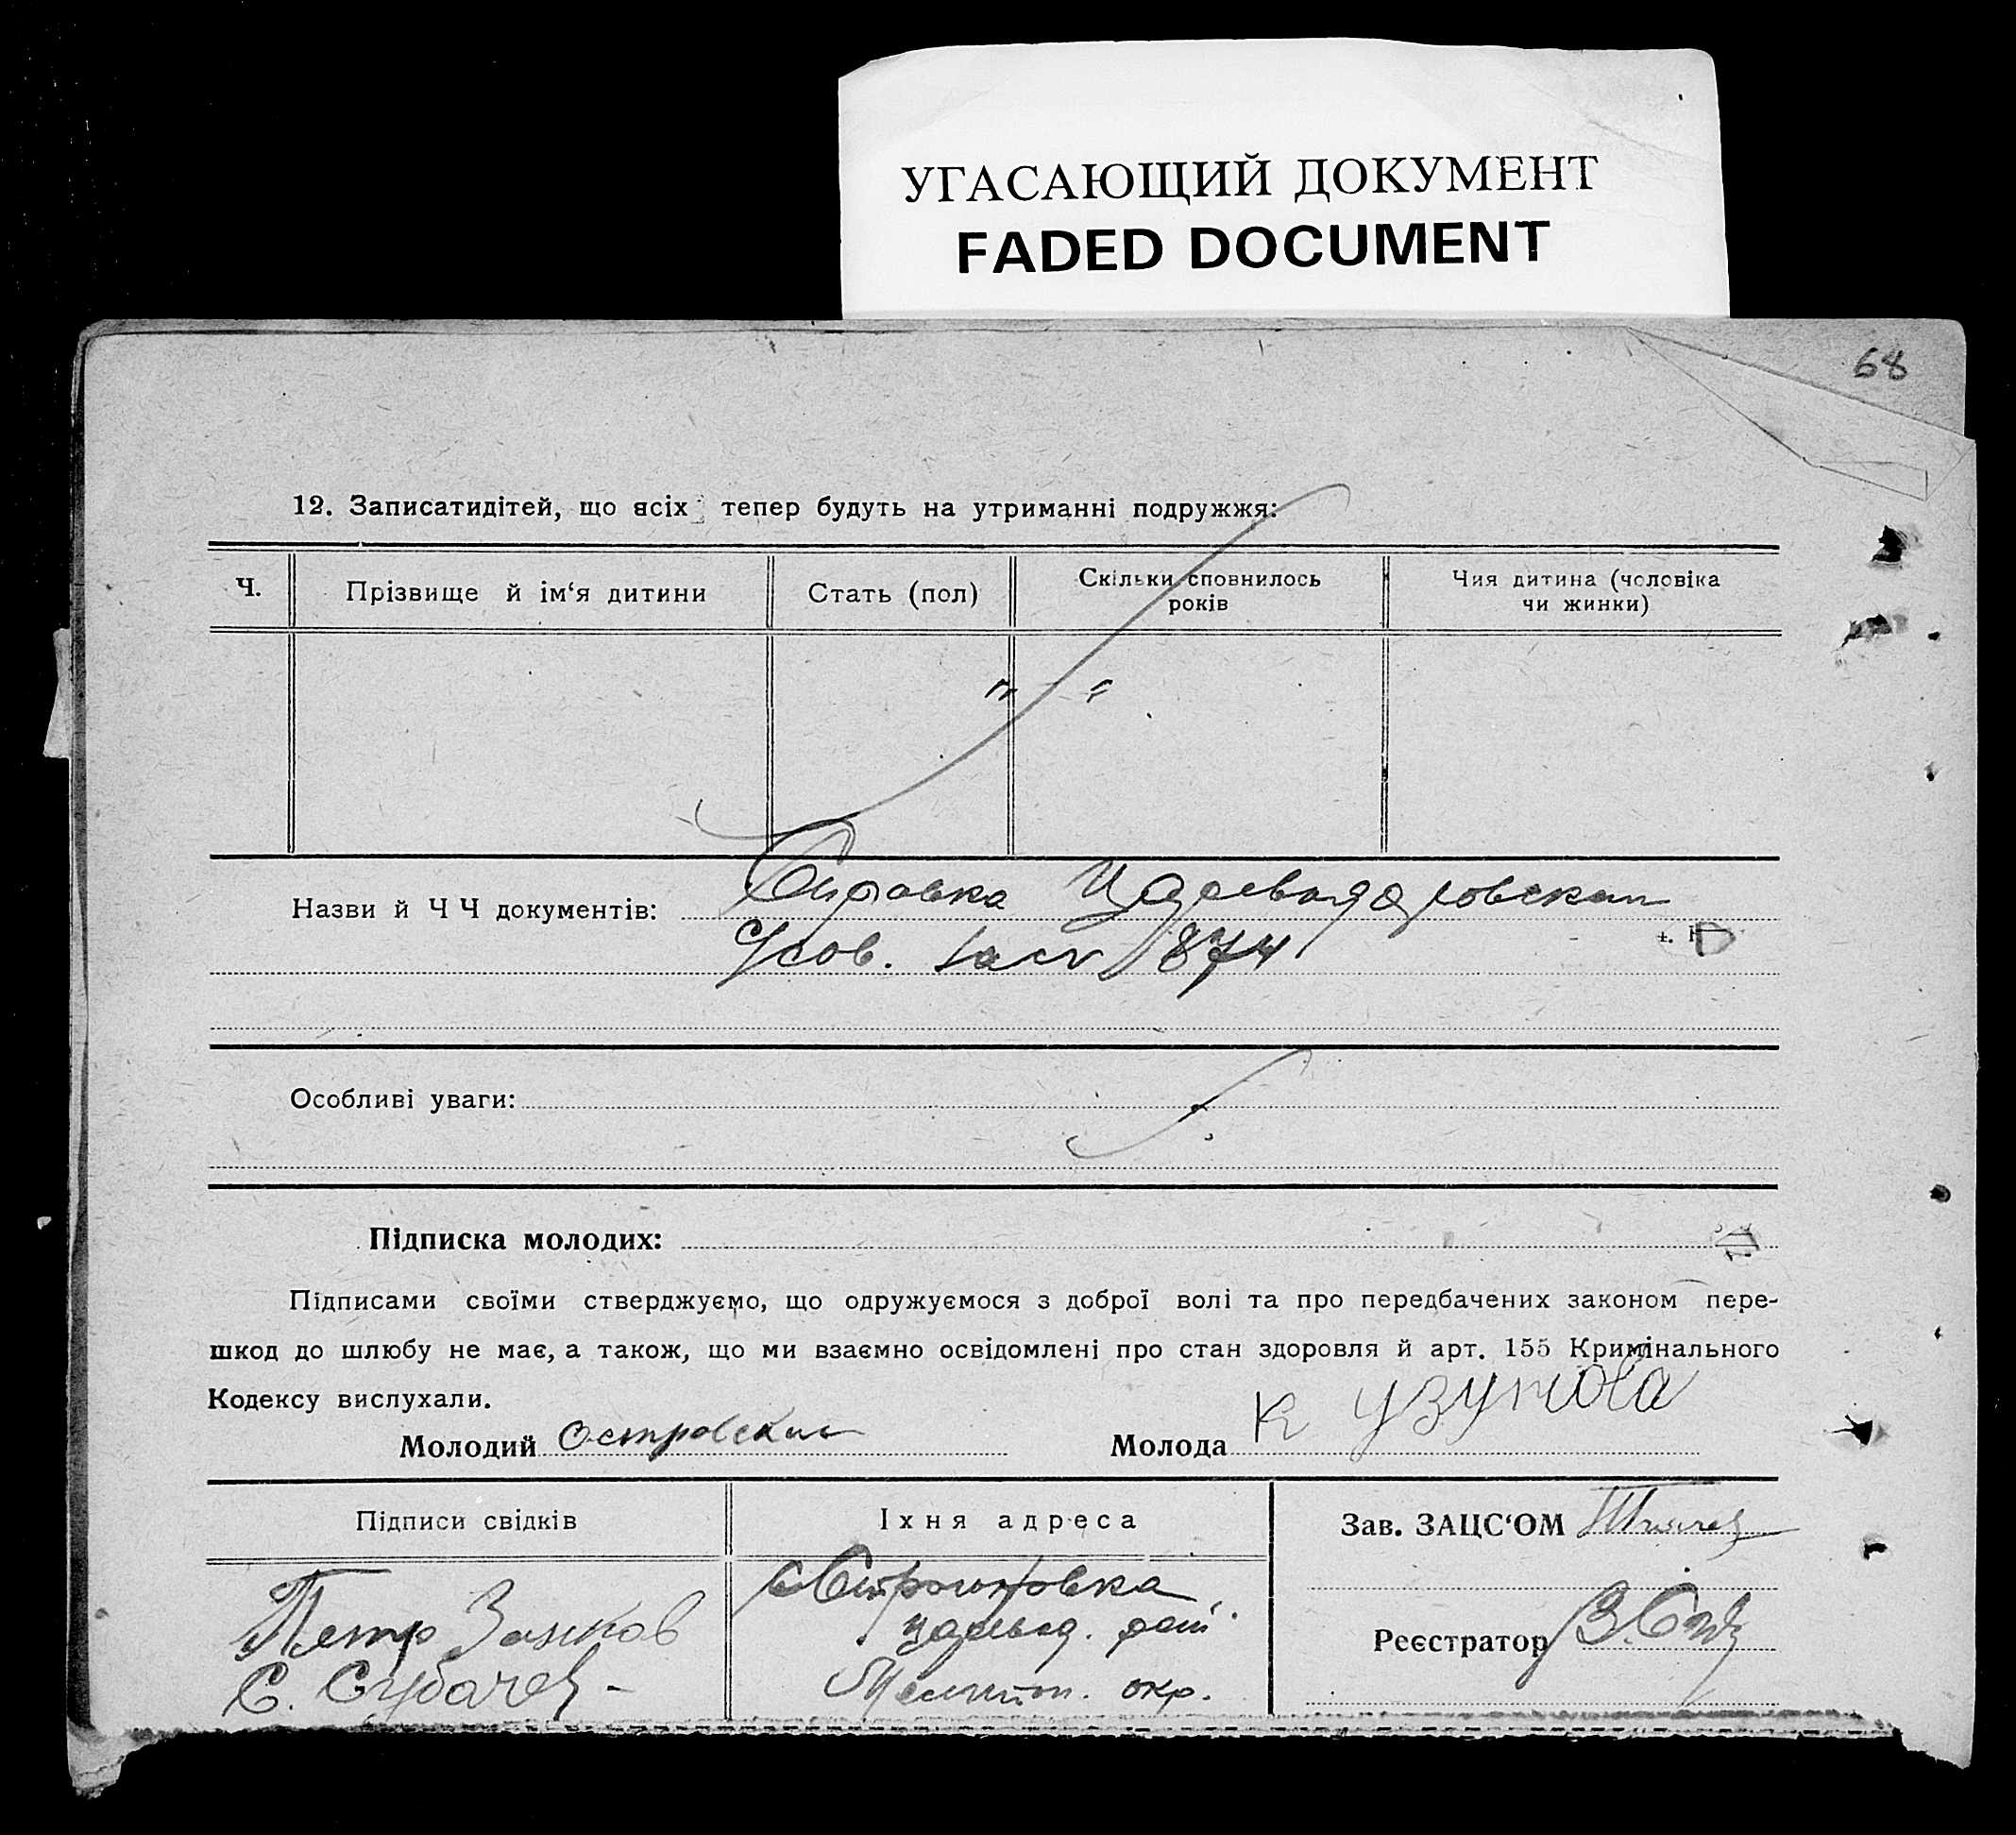 УГАСАЮЩИЙ ДОКУМЕНТ
FADED DOCUMENT
68
12. Записатидітей, що всіх тепер будуть на утриманні подружжя:
Ч.
Прізвище й ім‘я дитини
Стать (пол)
Скільки сповнилось
років
Чия дитина (чоловіка
чи жинки)
" "
Назви й Ч Ч документів: Справка
874
Особливі уваги:
Підписка молодих:
Підписами своїми стверджуємо, що одружуємося з доброї волі та про передбачених законом пере-
шкод до шлюбу не має, а також, що ми взаємно освідомлені про стан здоровля й арт. 155 Кримінального
Кодексу вислухали.
Молодий Островский
Молода К Узунова
Підписи свідків
Їхня адреса
Зав. ЗАЦС‘ОМ
Петр
С.
Строгоновка
царевод. рай.
Мелитоп. окр.
Реєстратор